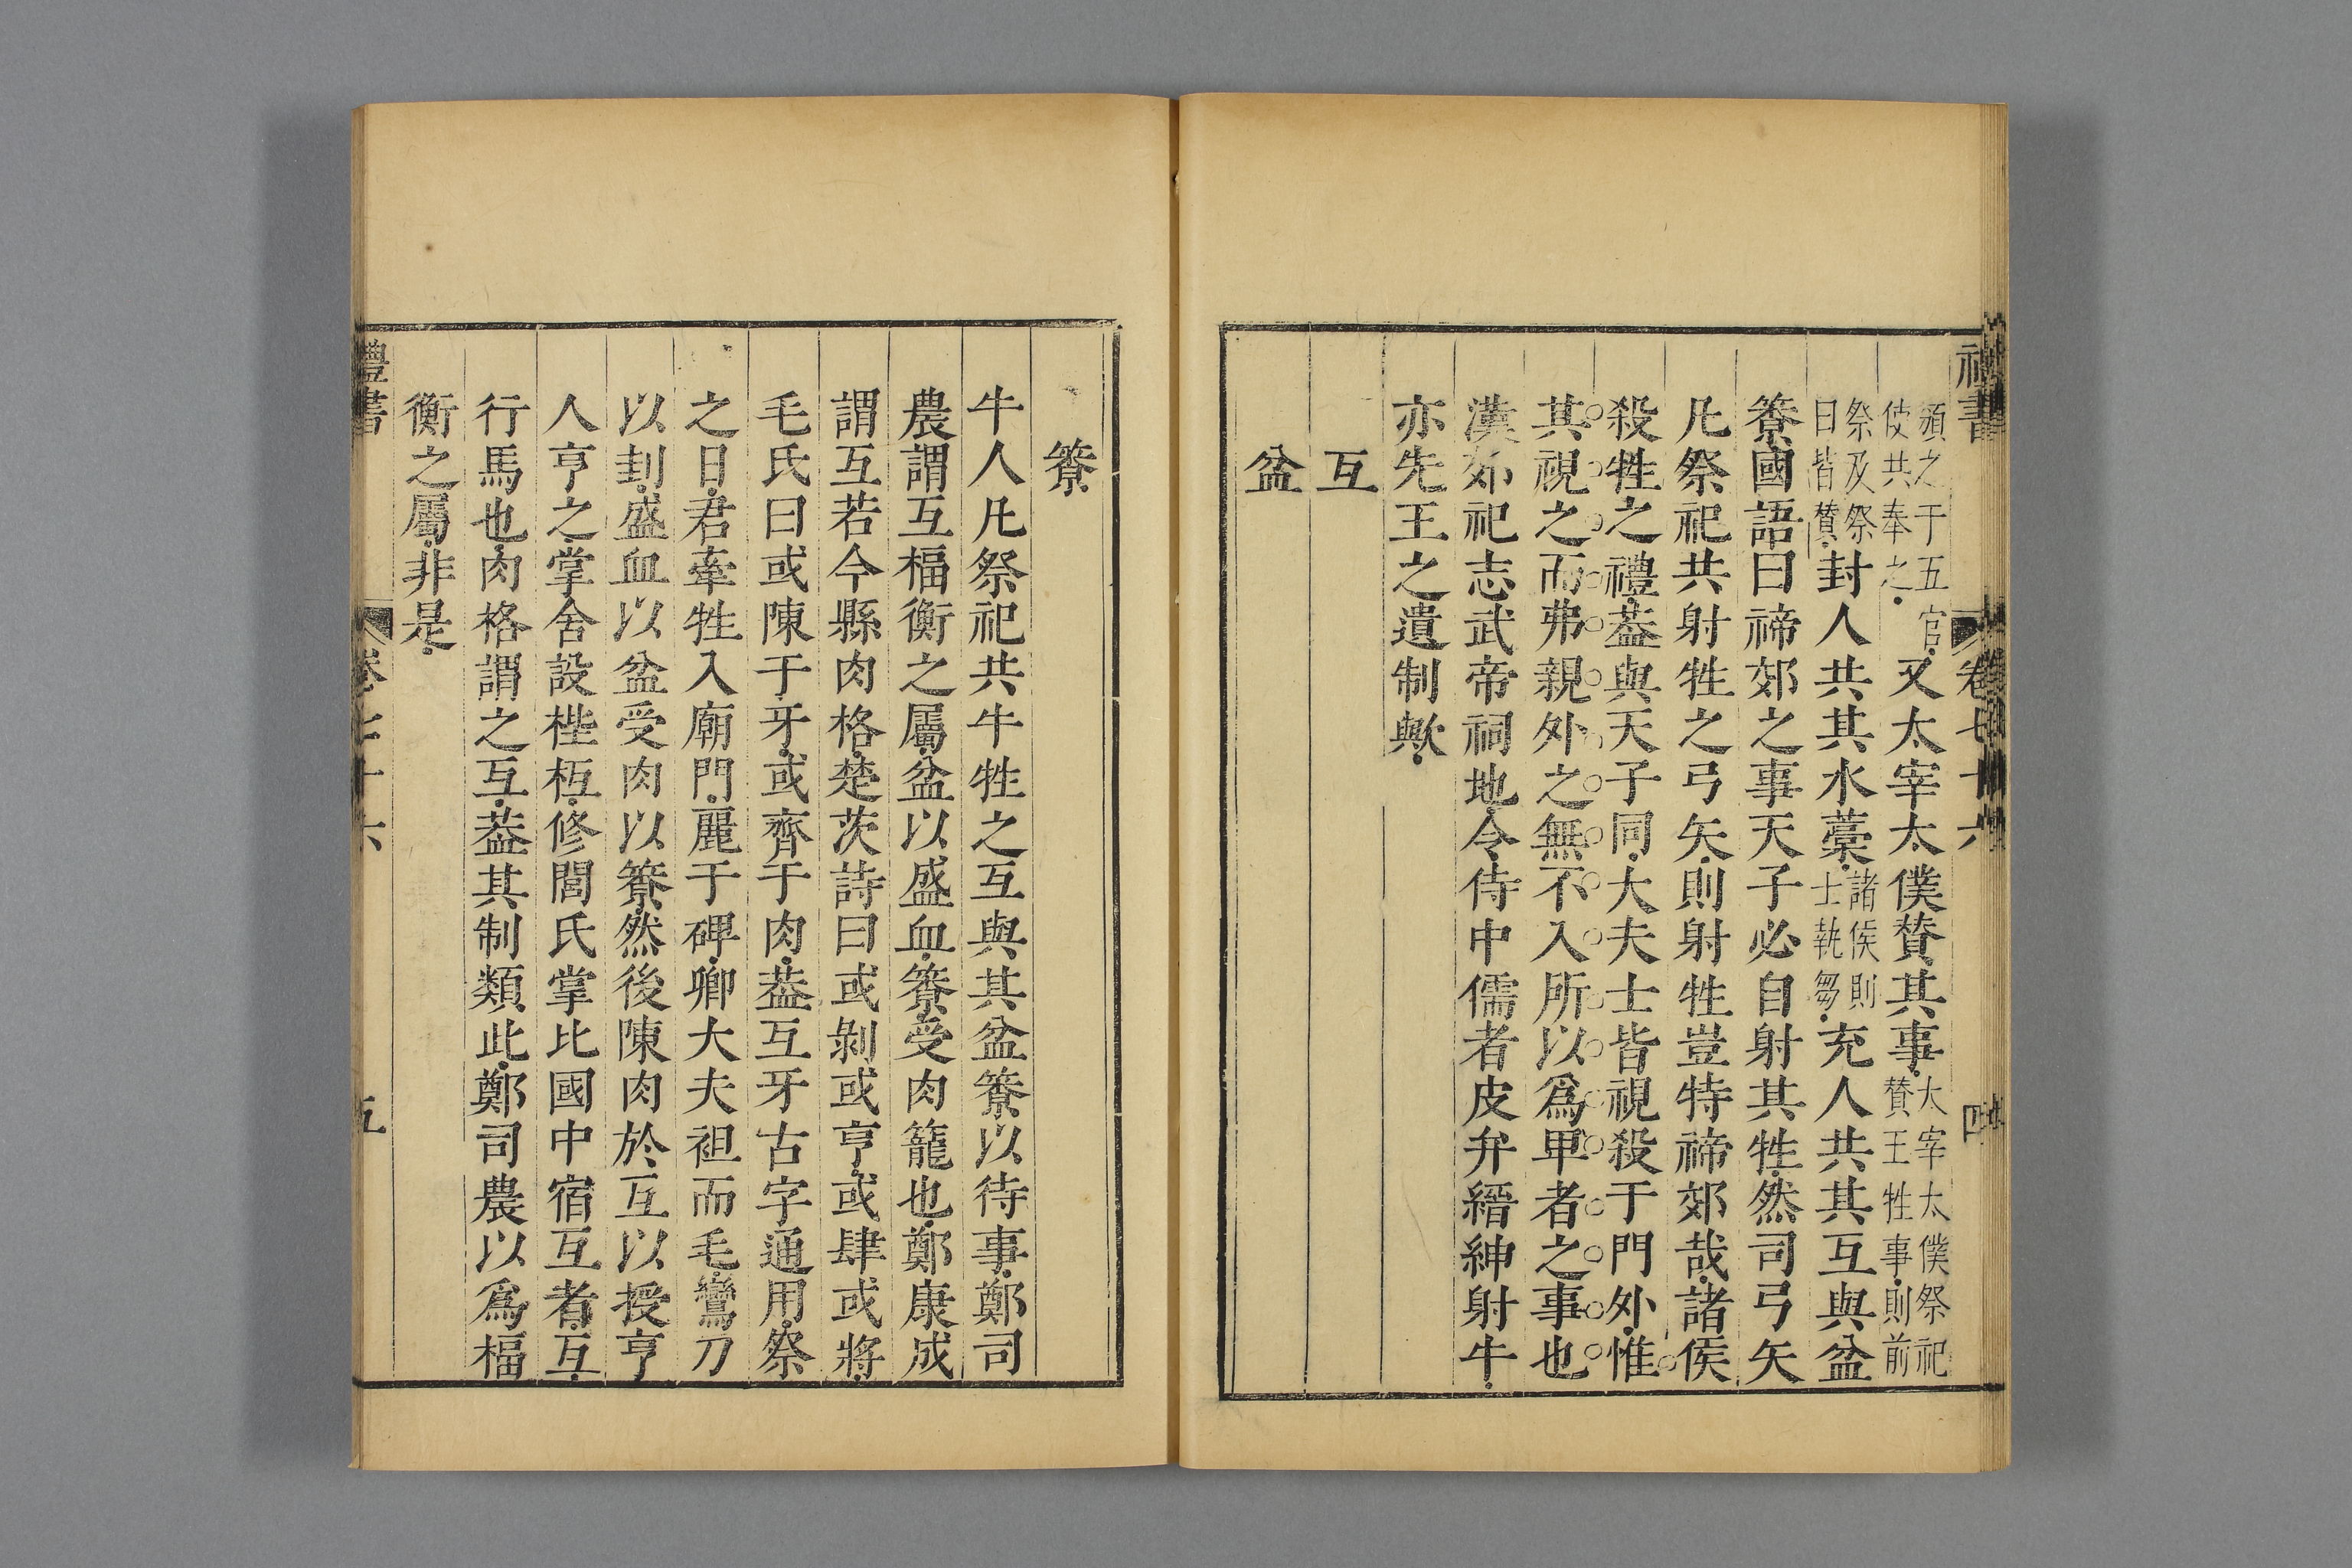 禮書 卷七十六 四
頒之于五官使共奉之又太宰太僕贊其事大宰太僕祭祀贊王牲事則前
祭及祭日皆贊封人共其水藁諸侯則士執芻充人共其互與盆
簝國語曰禘郊之事天子必自射其牲然司弓矢
凡祭祀共射牲之弓矢則射牲豈特禘郊哉諸侯
殺牲之禮葢與天子同大夫士皆視殺于門外惟
其視之而弗親外之無不入所以爲卑者之事也
漢郊祀志武帝祠地令侍中儒者皮弁縉紳射牛
亦先王之遺制歟
互
盆
簝
牛人凡祭祀共牛牲之互與其盆簝以待事鄭司
農謂互楅衡之屬盆以盛血簝受肉籠也鄭康成
謂互若今縣肉格楚茨詩曰或剝或亨或肆或將
毛氏曰或陳于牙或齊于肉葢互牙古字通用祭
之日君牽牲入廟門麗于碑卿大夫袒而毛鸞刀
以刲盛血以盆受肉以簝然後陳肉於互以授亨
人亨之掌舍設梐枑修閭氏掌比國中宿互者互
行馬也肉格謂之互葢其制類此鄭司農以爲楅
衡之屬非是
禮書 卷七十六 五